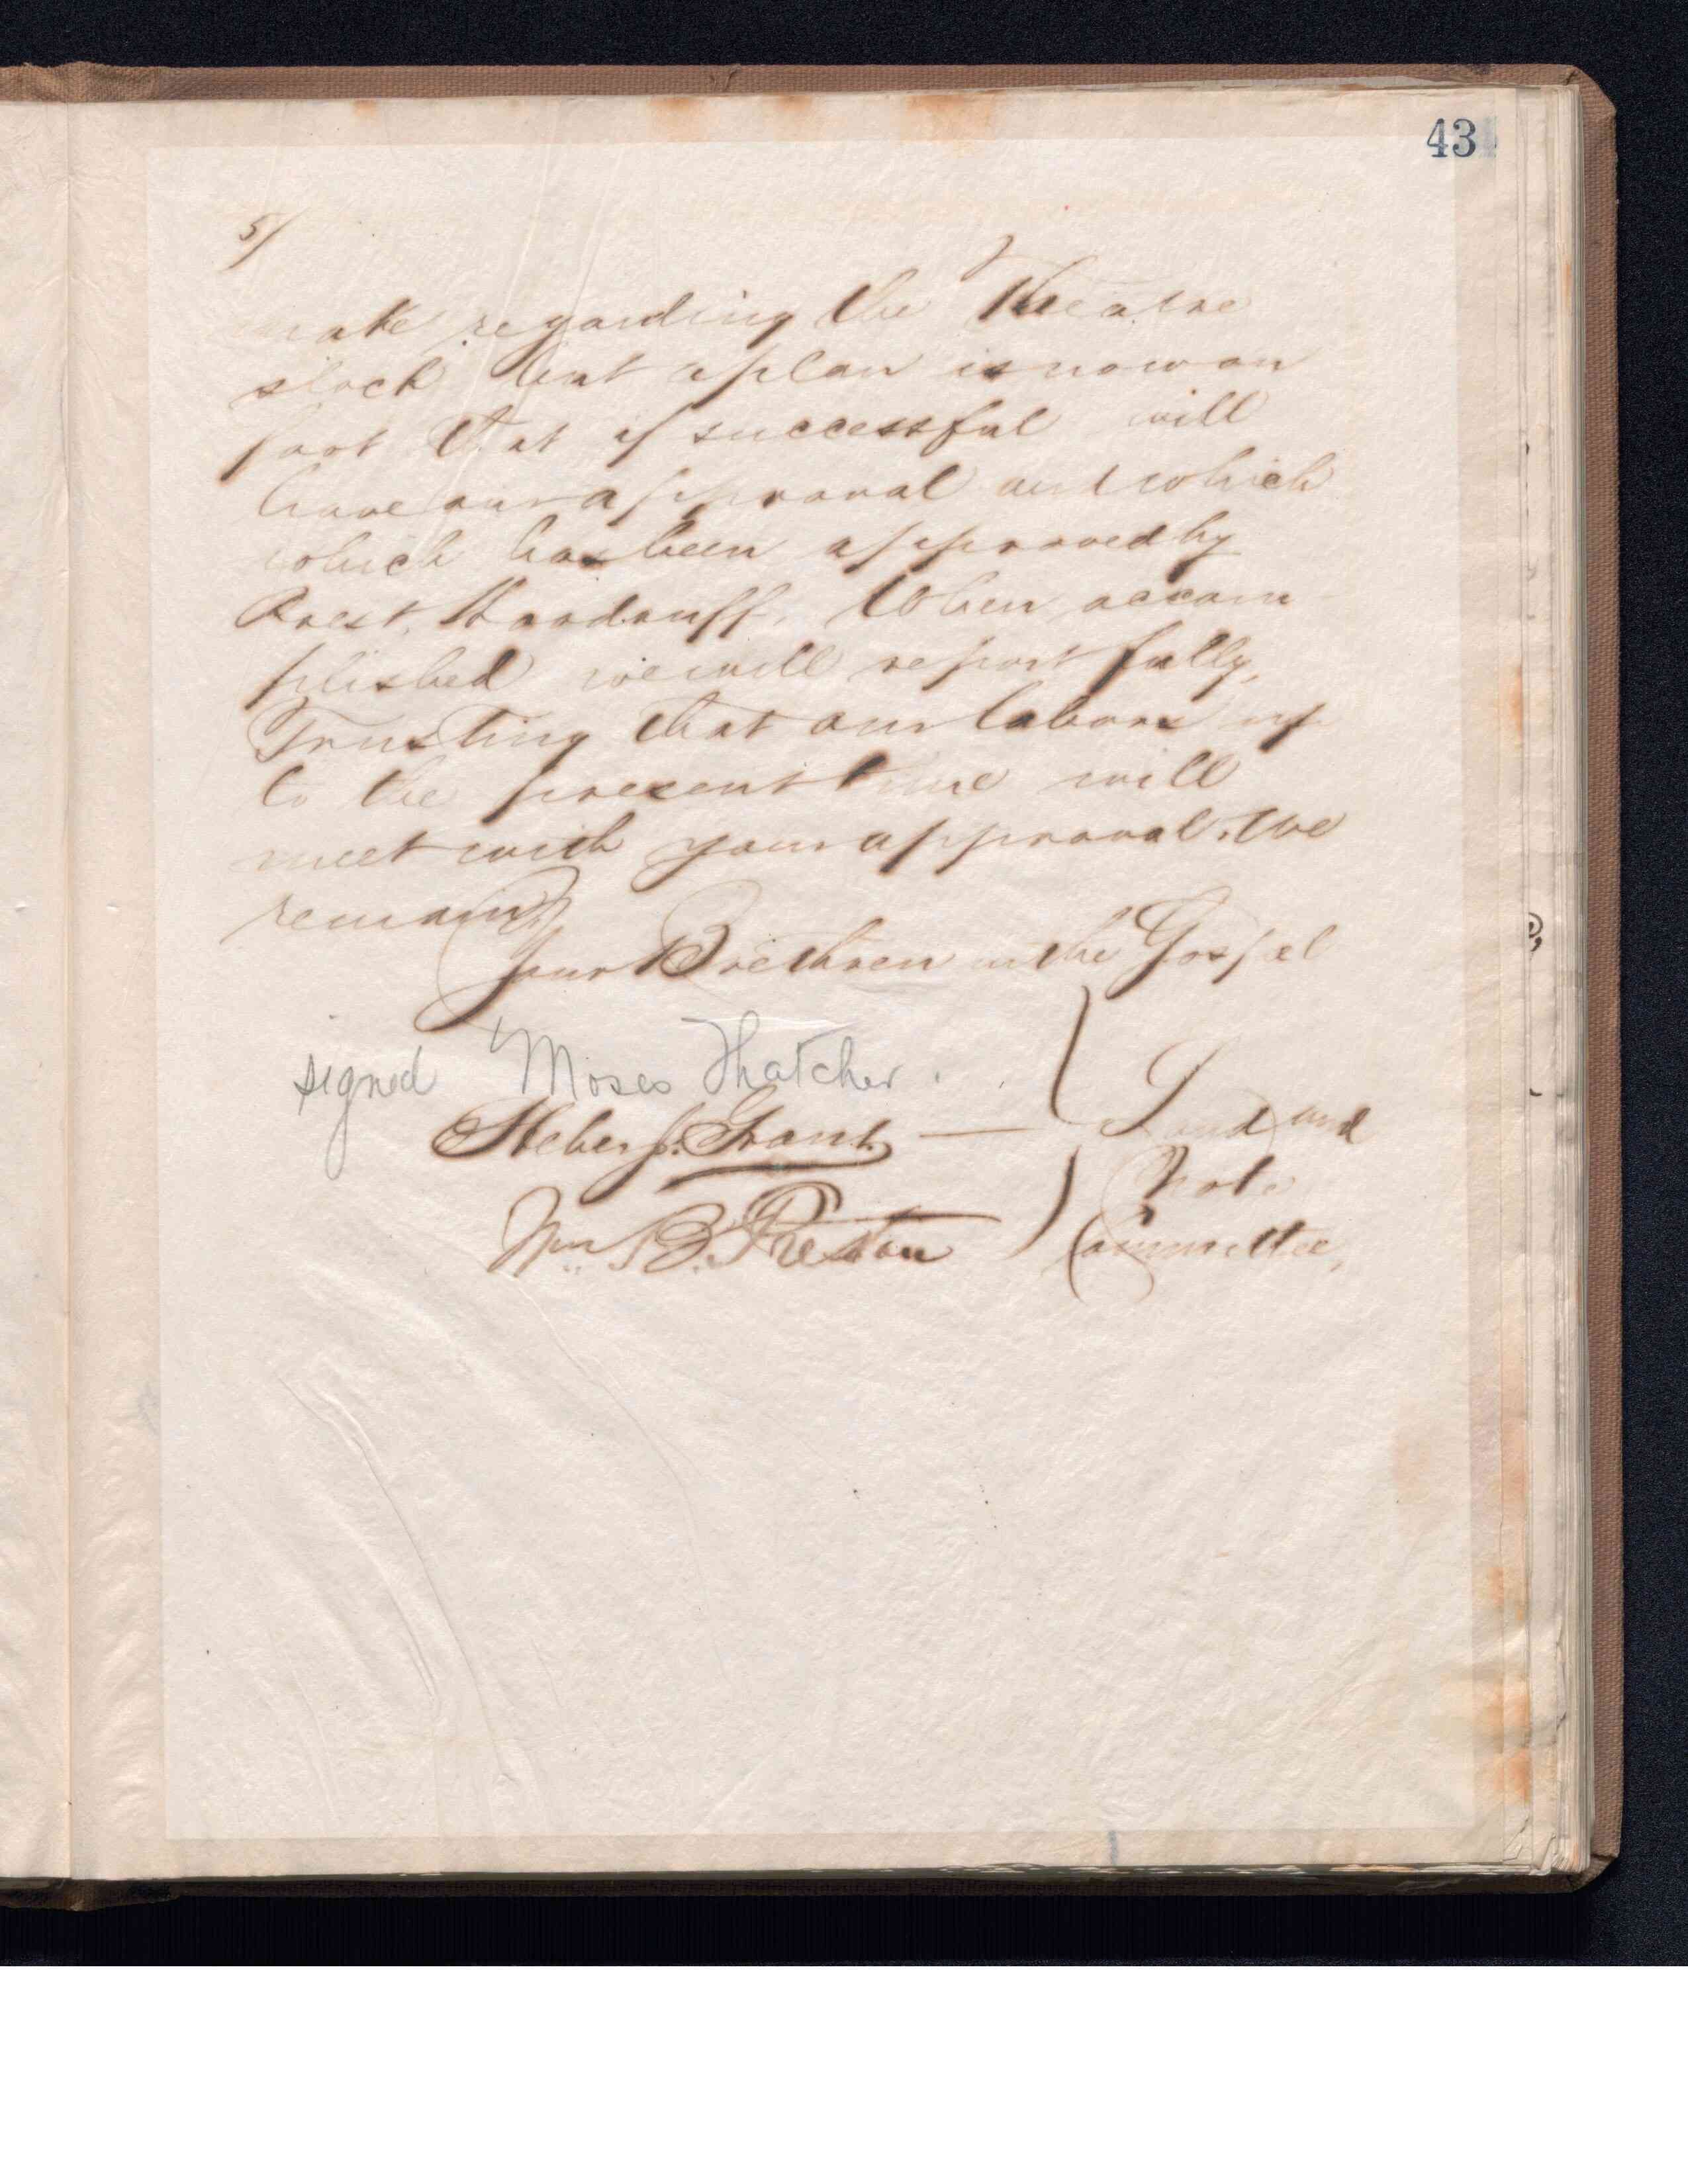 43
5/
make regarding the Theatre
stock but a plan is now on
foot that if successful will
have our approval and which
which has been approved by
Prest. Woodruff. When accom-
plished we will report fully,
Trusting that our labors up
to the present time will
meet with your approval. We
remain
Your Brethren in the Gospel
signed Moses Thatcher.
Heber J. Grant.
Wm B. Preston
Land and
Note
Committee,